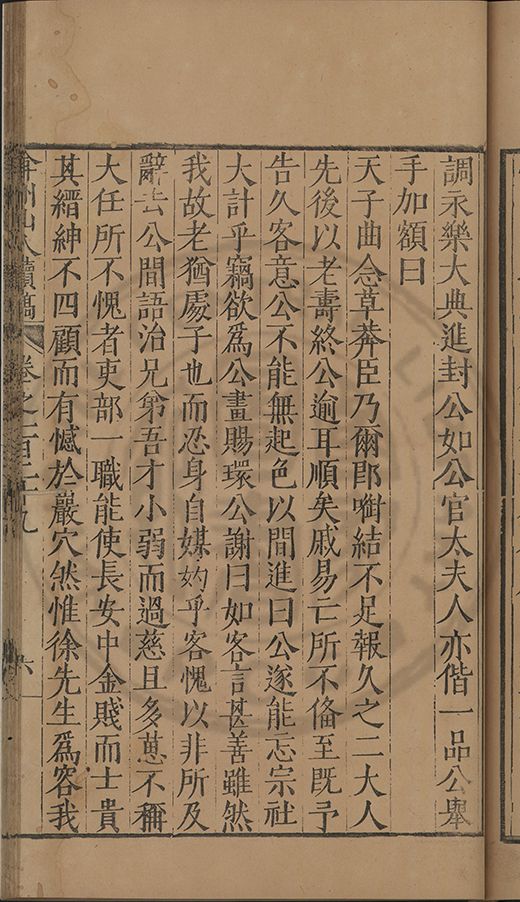 調永樂大典進封公如公官太夫人亦偕一品公舉
手加額曰
天子曲念草莽臣乃爾卽㗋結不足報久之二大人
先後以老壽終公逾耳順矣戚易亡所不俻至既予
告久客意公不能無起色以間進曰公遂能忘宗社
大計乎竊欲爲公畫賜環公謝曰如客言甚善雖然
我故老猶處子也而忍身自媒妁乎客愧以非所及
辭去公間語治兄弟吾才小弱而過慈且多葸不稱
大任所不愧者吏部一職能使長安中金賤而士貴
其縉紳不四顧而有憾於巖穴然惟徐先生爲容我
弇州山人續稿 卷之一百三十九 六